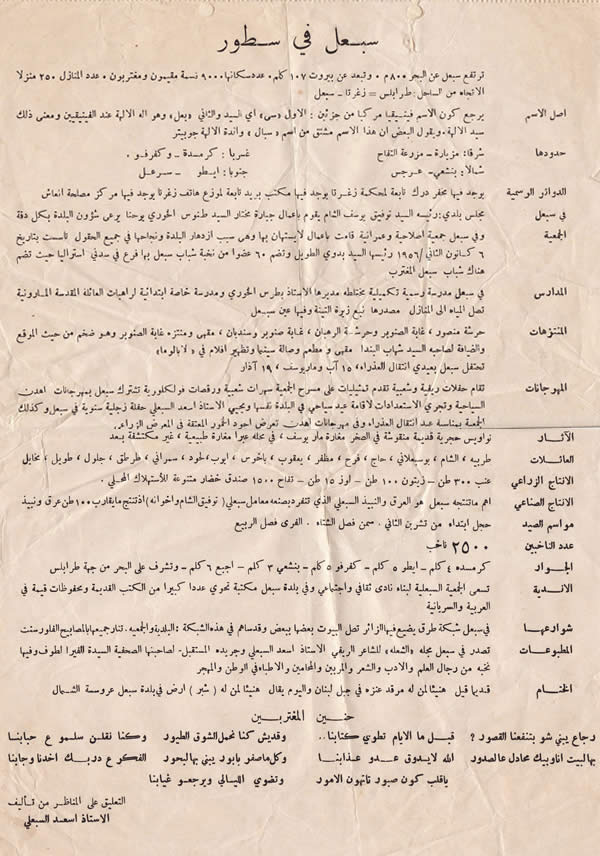 سبعل في سطور
ترتفع سبعل عن البحر ٨٠٠ م ٠ وتبعد عن بيروت ١٠٧ كلم ٠ عدد سكانها ٩٠٠٠ نسمة مقيمون ومغتربون ٠ عدد المنازل ٢٥٠ منزلا
الاتجاه من الساحل: طرابلس = زغرتا ــ سبعل
اصل الاسم يرجع كون الاسم فينيقيا مركبا من جزئين : الاول «سي» أي السيد والثاني «بعل» وهو اله الالهة عند الفينيقيين ومعنى ذلك
سيد الالهة . ويقول البعض ان هذا الاسم مشتق من اسم « سبال » والدة الالهة جوبيتر
حدودها شرقا: مزيارة ــ مزرعة التفاح غربا : كرمسدة ــ وكفرفو ٠
شمالا: بنشعي ــ عرجس جنوبا: ايطو ــ سرعل
الدوائر الرسمية يوجد فيها مخفر درك تابعة لمحكمة زغرتا يوجد فيها مكتب بريد تابعة لموزع هاتف زغرتا يوجد فيها مركز مصلحة انعاش
في سبعل مجلس بلدي: رئيسه السيد توفيق يوسف الشام يقوم باعمال جبارة مختار السيد طنوس الخوري يوحنا يرعى شؤون البلدة بكل دقة
الجمعية وفي سبعل جمعية اصلاحية وعمرانية قامت باعمال لايستهان بها وهي سبب ازدهار البلدة ونجاحها في جميع الحقول تاسست بتاريخ
٦ كانون الثاني ١٩٥٦ رئيسها السيد بدوي الطويل وتضم ٦٠ عضوا من نخبة شباب سبعل بها فرع في سدني استراليا حيث تضم
هناك شباب سبعل المغترب
المدارس في سبعل مدرسة رسمية تكميلية مختلطه مديرها الاستاذ بطرس الخوري ومدرسة خاصة ابتدائية لراهبات العائلة المقدسة المارونية
تصل المياه الى المنازل مصدرها نبع زيرة التينة وفيها عين سبعل
المنتزهات حرشة منصور ، غابة الصنوبر وحرشة الرهبان ، غابة صنوبر وسنديان ، مقهى ومنتزه غابة الصنوبر وهو ضخم من حيث الموقع
والضيافة لصاحبه السيد شهاب البندا مقهى و مطعم وصالة سينما وتظهير افلام في « لابالوما»
تحتفل سبعل بعيدي انتقال العذراء ، ١٥ آب وماريوسف ، ١٩ آذار
المهرجانات تقام حفلات ريفية وشعبية تقدم تمثيليات على مسرح الجمعية سهرات شعبية ورقصات فولكلورية تشترك سبعل بمهرجانات اهدن
السياحية وتجري الاستعدادات لاقامة عيد سياحي في البلدة نفسها ويحيي الاستاذ اسعد السبعلي حفلة زجلية سنوية في سبعل وكذلك
الجمعية بمناسبة عيد انتقال العذراء وفي مهرجانات اهدن تعرض اجود الخمور المعتقة في المعرض الزراعي
الآثار نواويس حجرية قديمة منقوشة في الصخر مغارة مار يوسف ، في محلة عيرا مغارة طبيعية ، غير مكتشفة بعد
العائلات طربيه ، الشام ، بوسعلاني ، حاج ، فرح ، مظفر ، يعقوب ، باخوس ، ايوب ، لحود ، سمراني ، طرطق ، جلول ، طويل ، مخايل
الانتاج الزراعي عنب ٣٠٠ طن ــ زيتون ١٠٠ طن ــ لوز ١٥ طن ــ تفاح ١٥٠٠ صندق خضار متنوعة للأستهلاك المحلي ٠
الانتاج الصناعي اهم ماتنتجه سبعل هو العرق والنبيذ السبعلي الذي تنفرد بصنعه معامل سبعلي ( توفيق الشام واخوانه) اذ تنتج ما يقارب ١٠٠ طن عرق ونبيذ
مواسم الصيد حجل ابتداء من تشرين الثاني . سمن فصل الشتاء ٠ الفرى فصل الربيع
عدد الناخبين ٢٥٠٠ ناخب
الجوار كرمسده ٤ كلم ــ ايطو ٥ كلم ــ كفرفو ٥ كلم ــ بنشعي ٣ كلم ــ اجبع ٦ كلم ــ وتشرف على البحر من جهة طرابلس
الاندية تسعى الجمعية السبعلية لبناء نادي ثقافي واجتماعي وفي بلدة سبعل مكتبة تحوي عددا كبيرا من الكتب القديمة ومحفوظات قيمة في
العربية والسريانية
شوارعها في سبعل شبكة طرق يضيع فيها الزائر تصل البيوت بعضها ببعض وقد ساهم في هذه الشبكة : البلدية والجمعية. تنار جميعها بالمصابيح الفلورسنت
المطبوعات تصدر في سبعل مجلة «الشعله» للشاعر الريفي الاستاذ اسعد السبعلي وجريده المستقبل- لصاحبتها الصحفية السيدة الفيرا لطوف وفيها
نخبه من رجال العلم والادب والشعر والمربين والمحامين والاطباء في الوطن والمهجر
الختام قديما قيل هنيئا لمن له مرقد عنزه في جبل لبنان واليوم يقال هنيئا لمن له ( شبر ) ارض في بلدة سبعل عروسة الشمال
حنين المغتربين
رجاع يبني شو بتنفعنا القصور ؟ قبل ما الايام تطوي كتابنا . . وقديش كنا نحمل الشوق الطيور وكنا نقلن سلمو ع حبابنا
بهالبيت اناوبيك محادل عالصدور الله لايدوق عدو عذابنا وكل ماصفر بابور يبني بهالبحور الفكر ع دربك اخدنا وجابنا
ياقلب كون صبور تانهون الامور وتضوي الليالي ويرجعو غيابنا
التعليق على المناظر من تأليف
الاستاذ اسعد السبعلي